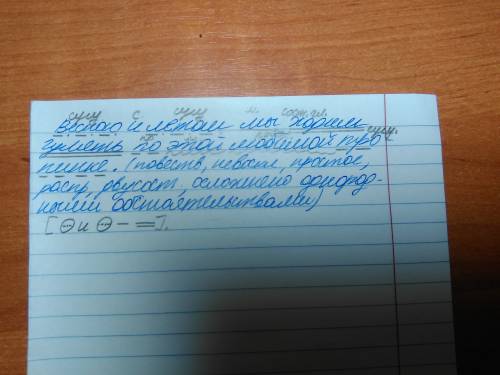 сущ с сущ м. сост.гл.
Весной и летом мы ходим
сущ.
гулять по этой любимой тро
пинке. (повеств, невоскл, простое,
распр, двусост, осложнено однород-
ными обстоятельствами)
[ и — = ].